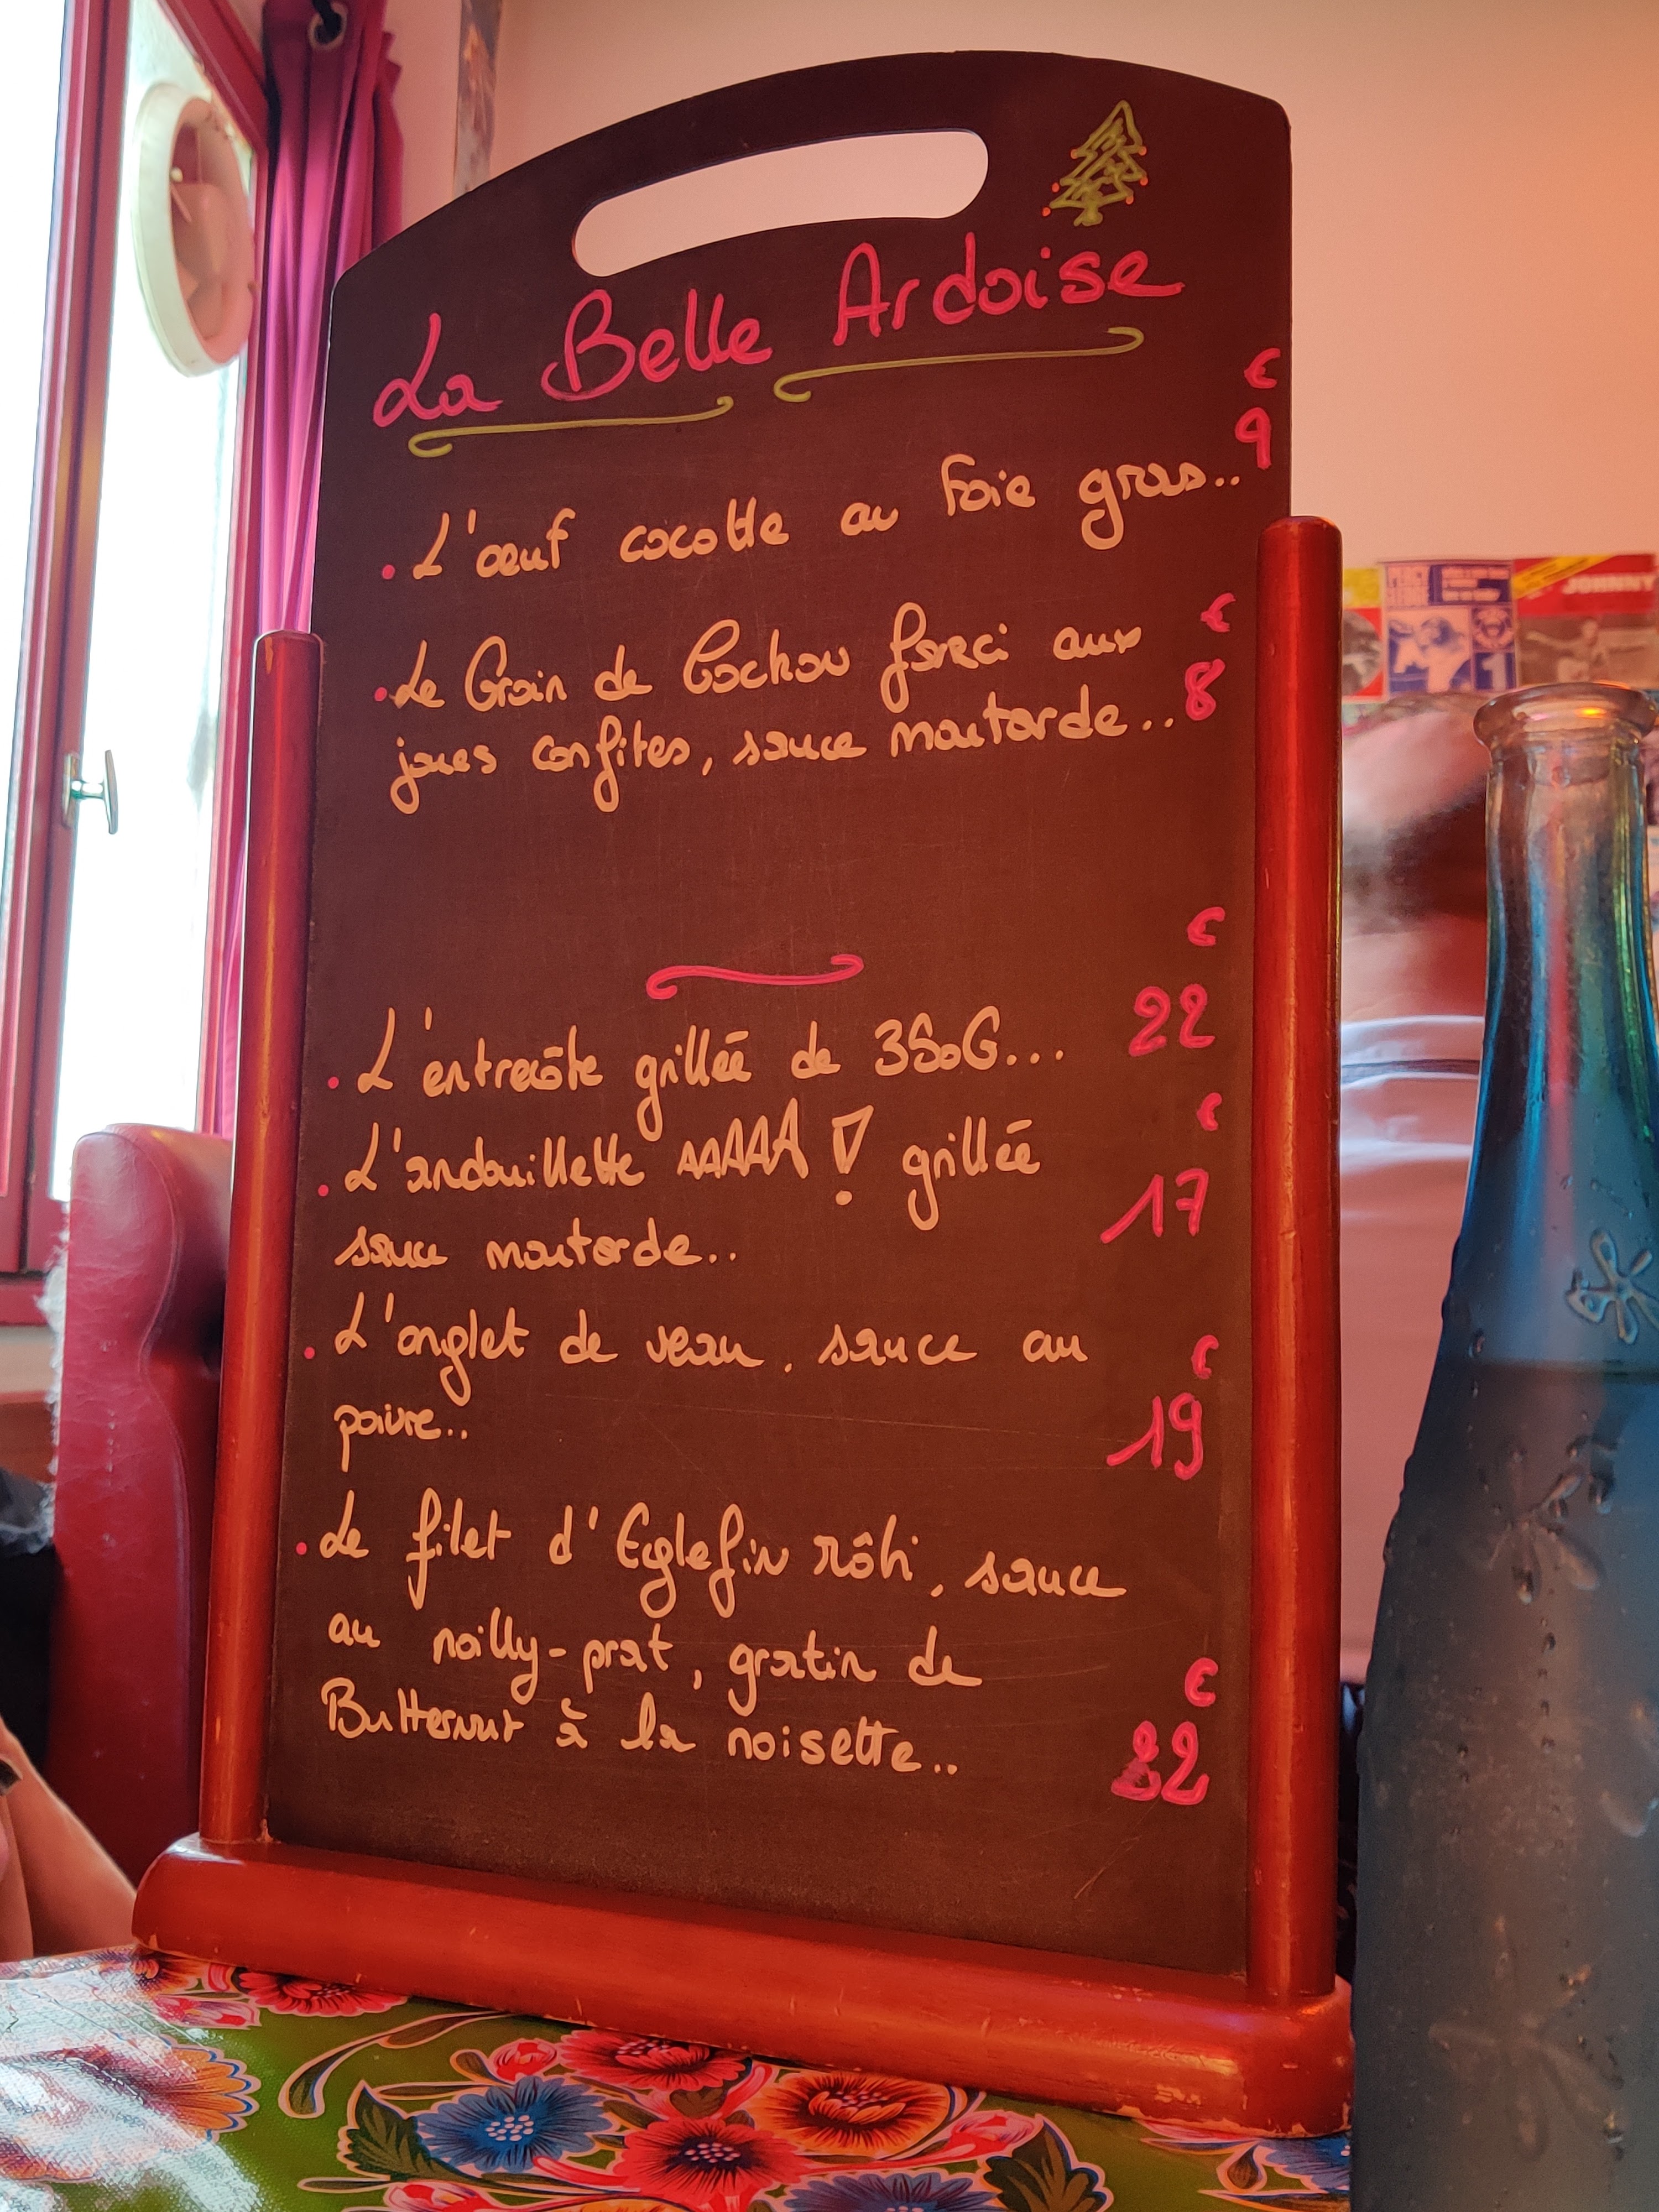 La Belle Ardoise
€
. L'œuf cocotte au Foie gras.. 9
€
. Le Groin de Cochon farci aux
joues confites, sauce moutarde.. 8
€
. L'entrecôte grillée de 350G... 22
€
. L'andouillette AAAAA ! grillée
sauce moutarde.. 17
. L'onglet de veau, sauce au €
poivre.. 19
. Le filet d'Eglefin rôti, sauce
au noilly-prat, gratin de €
Butternut à la noisette.. 22
JOHNNY
1